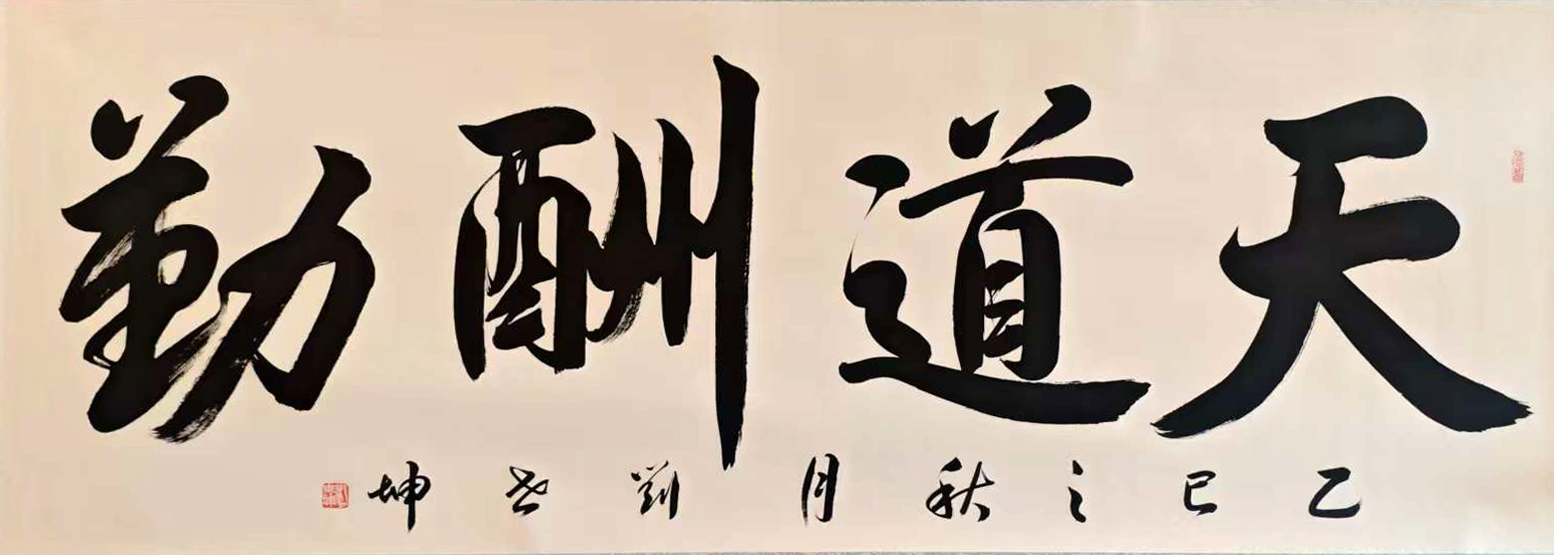 天道酬勤
乙巳之秋月劉世坤